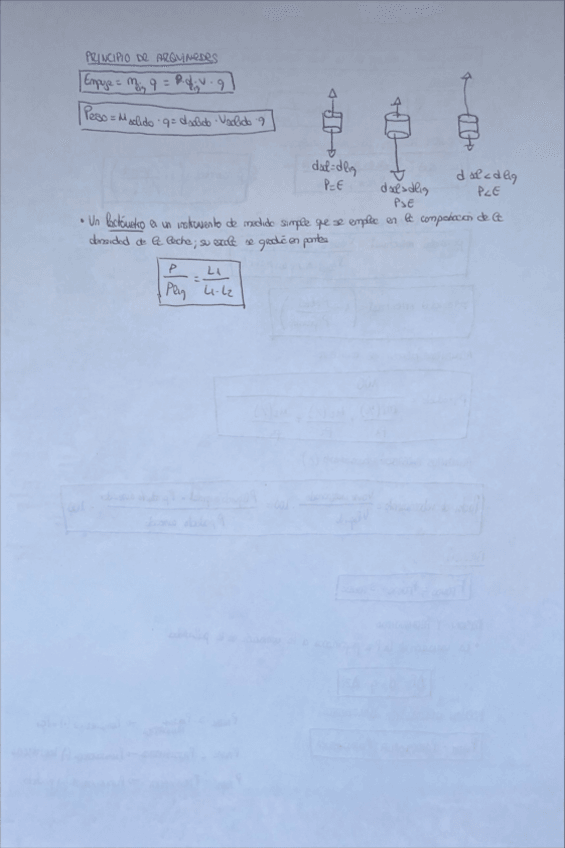 PRINCIPIO DE ARQUIMEDES
Empuje = m liq g = d liq v · g
Peso = M solido · g = d solido · V solido · g
d sol = d liq
P = E
d sol > d liq
P > E
d sol < d liq
P < E
• Un lactómetro es un instrumento de medida simple que se emplea en la comprobación de la
densidad de la leche; su escala se gradúa en puntos
P / P liq = L1 / L1 - L2